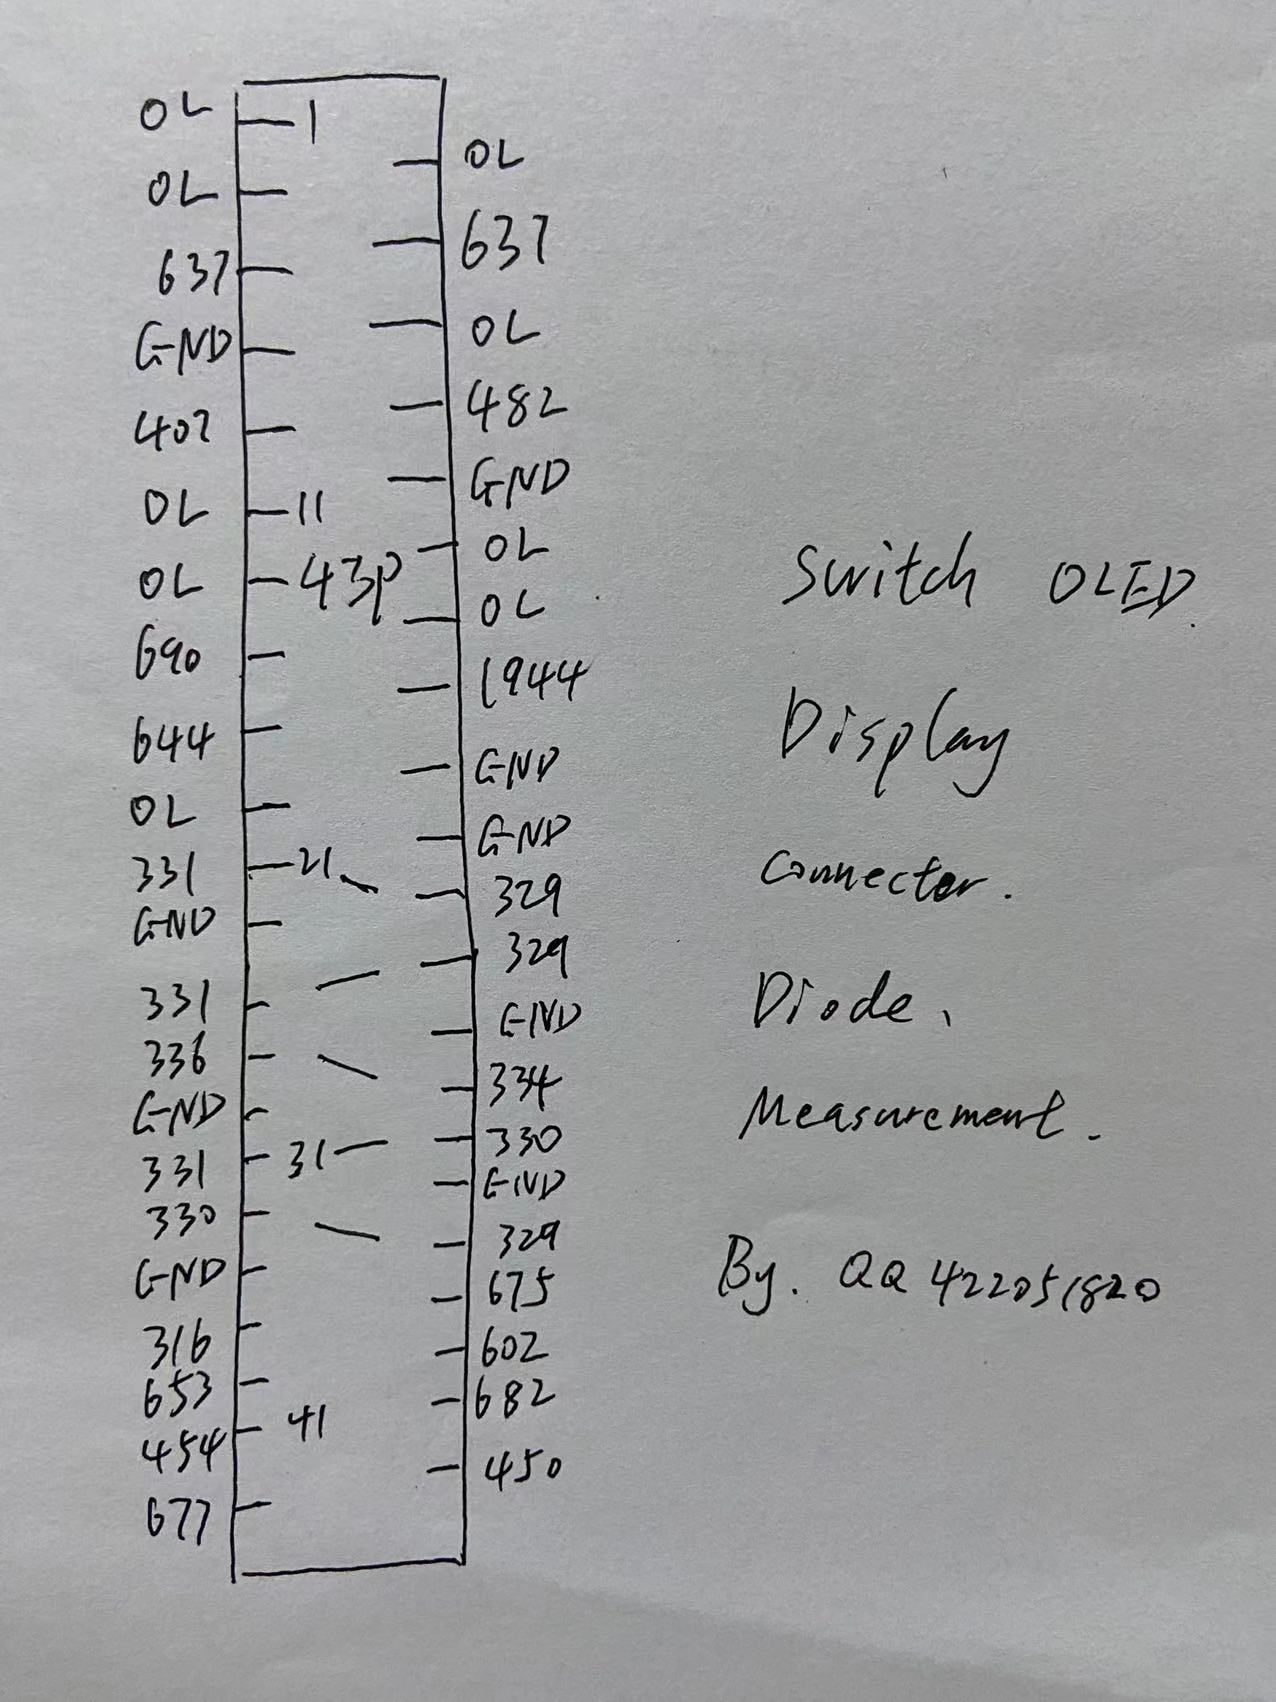 OL 1
OL
OL
637
637
OL
GND
482
402
GND
OL 11
OL
OL 43P
OL
690
1944
644
GND
OL
GND
331 21
329
GND
329
331
GND
336
334
GND
330
331 31
GND
330
329
GND
675
316
602
653
682
454 41
450
677
Switch OLED.
Display
Connector.
Diode.
Measurement.
By. QQ 422051820